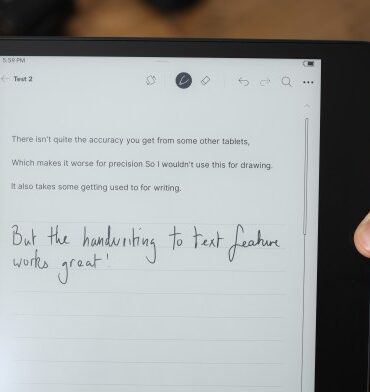 5:59 PM
Test 2
There isn't quite the accuracy you get from some other tablets,
Which makes it worse for precision So I wouldn't use this for drawing.
It also takes some getting used to for writing.
But the handwriting to text feature
works great!